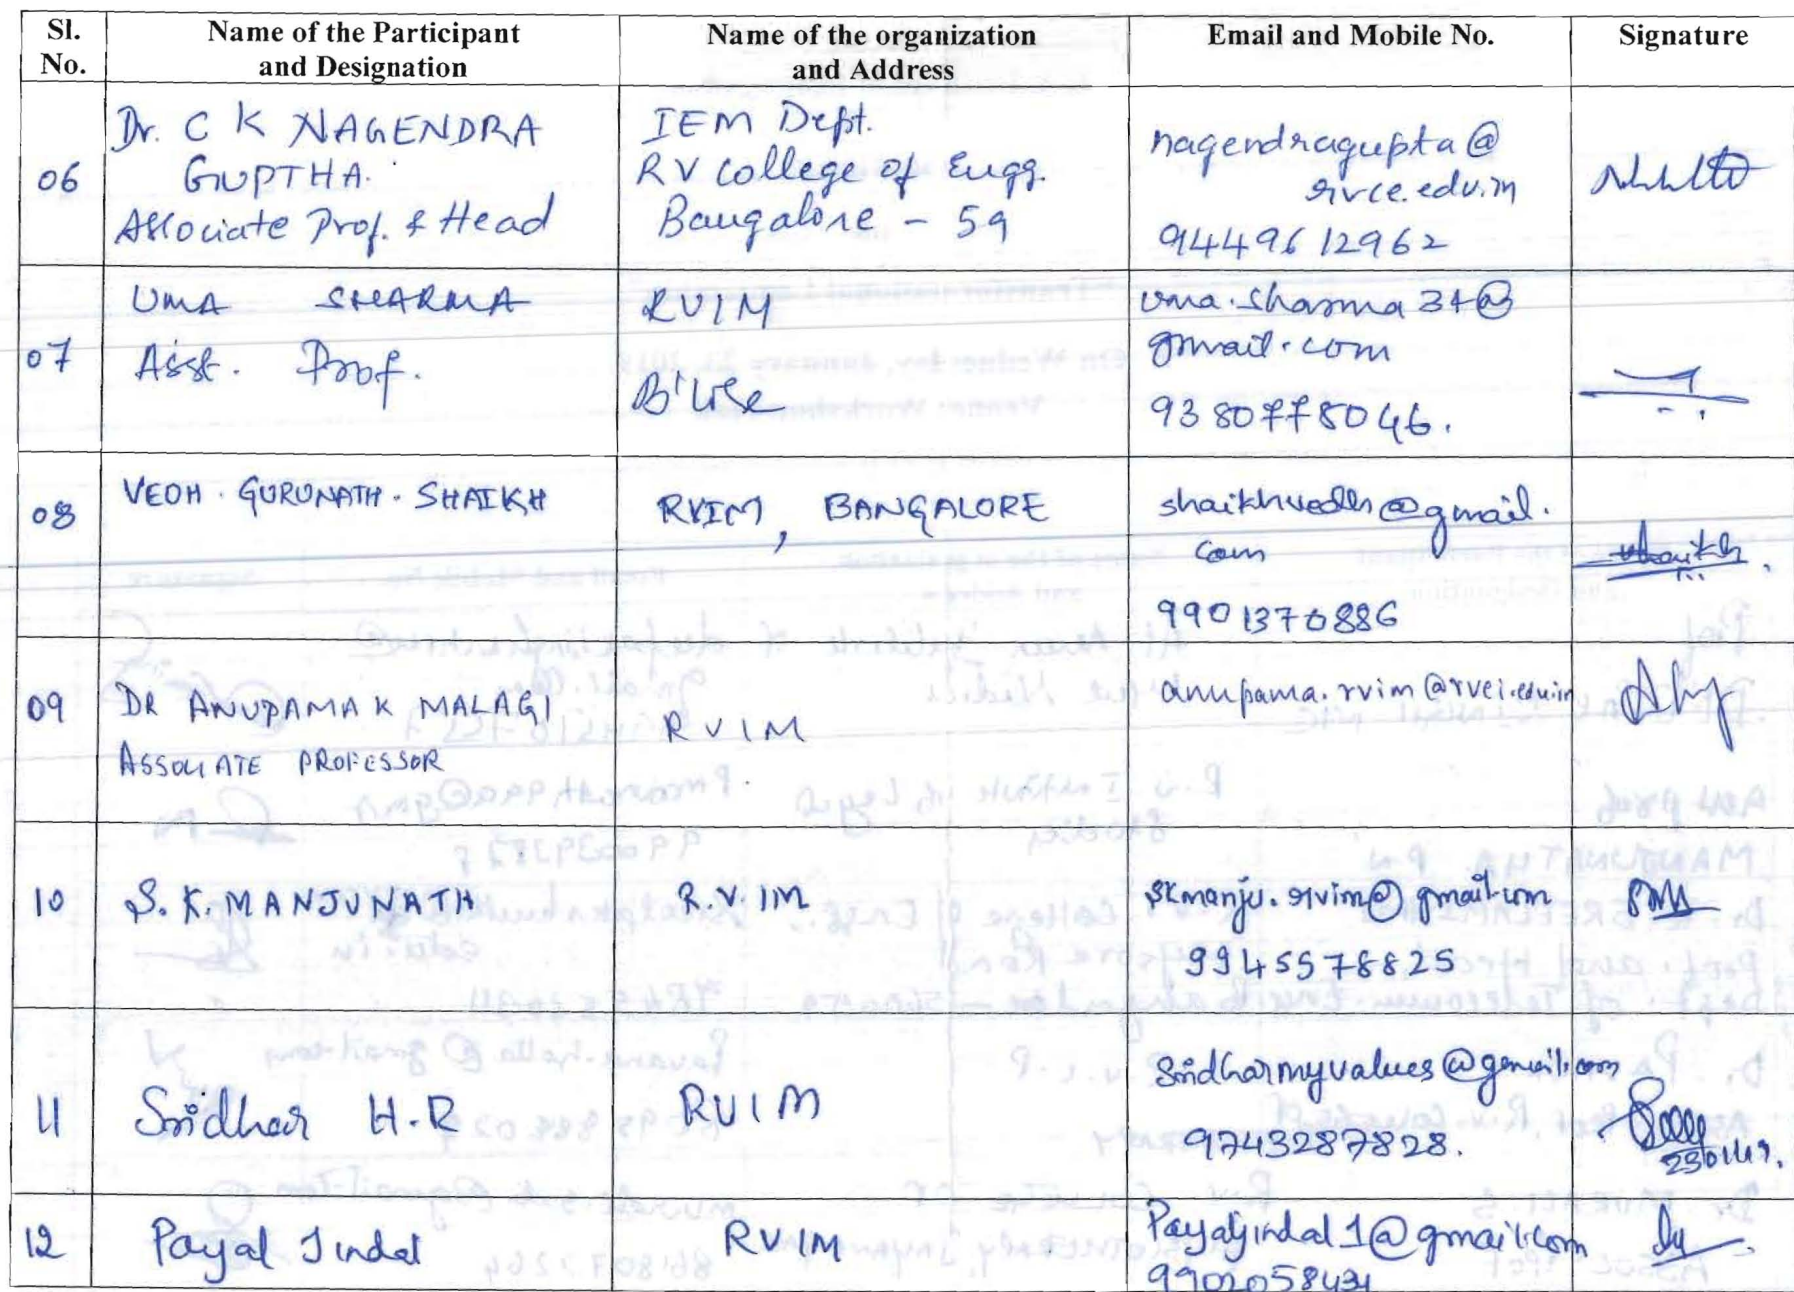 Sl. No.
Name of the Participant and Designation
Name of the organization and Address
Email and Mobile No.
Signature
06
Dr. C K NAGENDRA
GUPTHA.
Associate Prof. & Head
IEM Dept.
RV College of Engg.
Bangalore - 59
nagendragupta@
rvce.edu.in
94449612962
07
UMA SHARMA
Asst. Prof.
RVIM
B'lore
uma.sharma34@
gmail.com
9380778046.
08
VEDH. GURUNATH. SHAIKH
RVIM, BANGALORE
shaikhvedh@gmail.
com
9901370886
09
DR ANUPAMA K MALAGI
ASSOCIATE PROFESSOR
RVIM
anupama.rvim@rvei.edu.in
10
S. K. MANJUNATH
R.V. IM
skmanju.rvim@gmail.com
9945578825
11
Sridhar H.R
RVIM
Sridharmyvalues@gmail.com
9743287828.
12
Payal Jindal
RVIM
Payaljindal1@gmail.com
9902058431